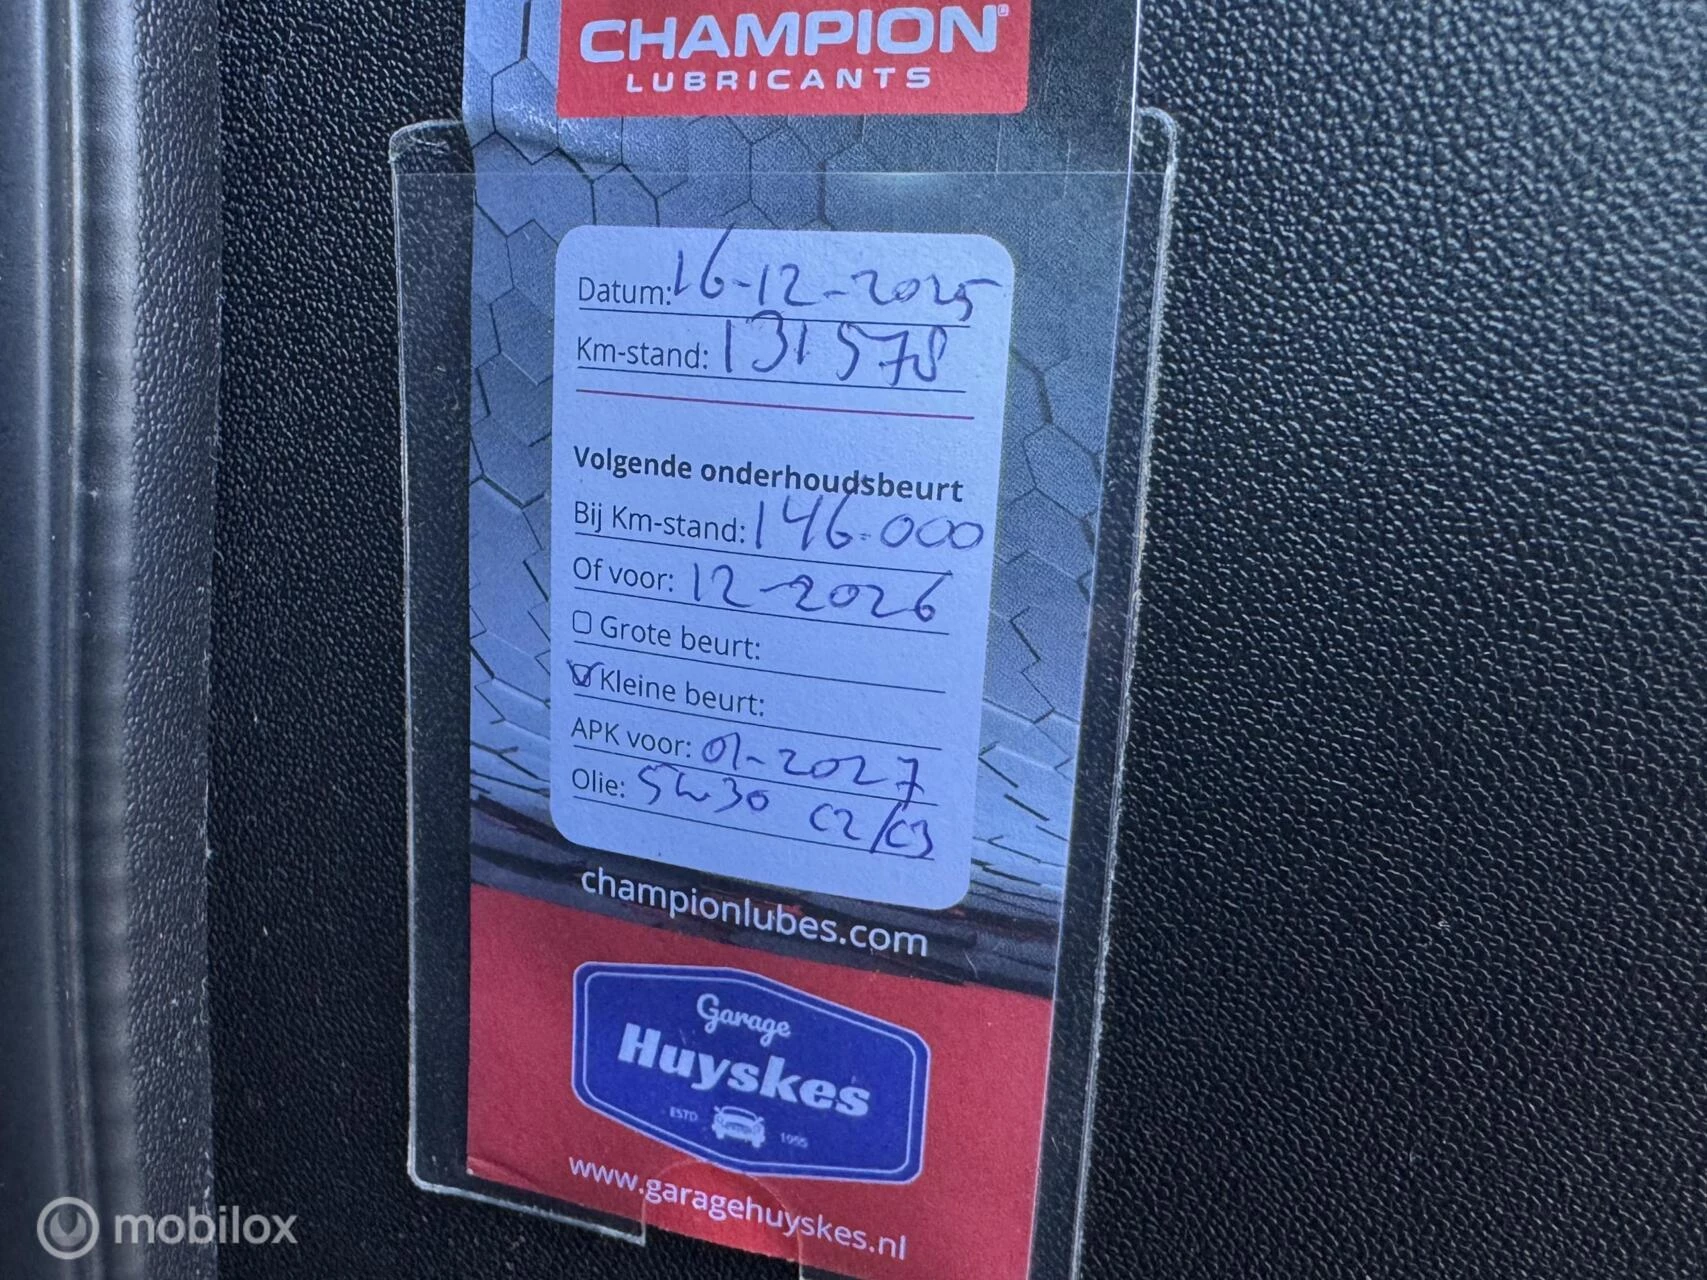 CHAMPION®
LUBRICANTS
Datum: 16-12-2025
Km-stand: 131578
Volgende onderhoudsbeurt
Bij Km-stand: 146.000
Of voor: 12-2026
Grote beurt:
Kleine beurt:
APK voor: 01-2027
Olie: 5w30 C2/C3
championlubes.com
Garage
Huyskes
ESTD 1955
www.garagehuyskes.nl
mobilox